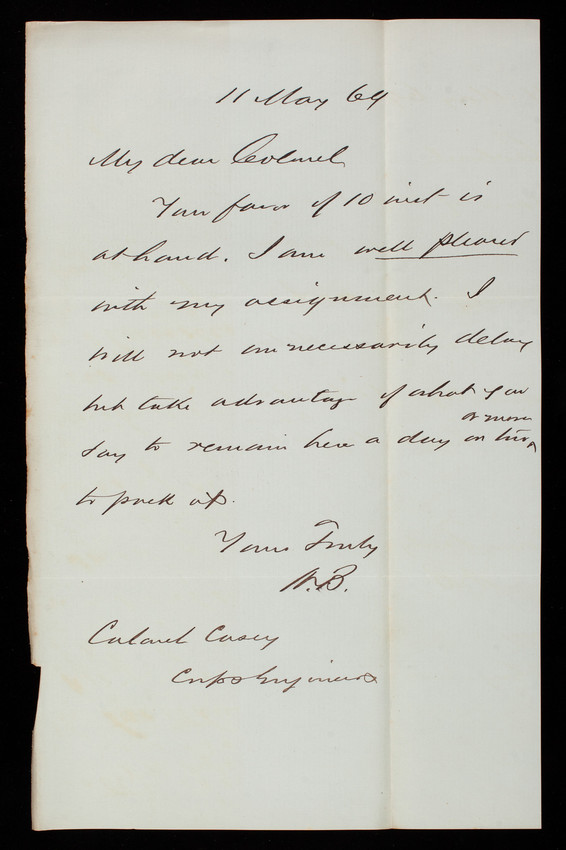 11 May 69
My dear Colonel
Your favor of 10 inst is
at hand. I am well pleased
with my assignment. I
will not unnecessarily delay
but take advantage of what you
or more
say to remain here a day or two ^
to pack up.
Yours Truly
W.B.
Colonel Casey
Corps Engineers